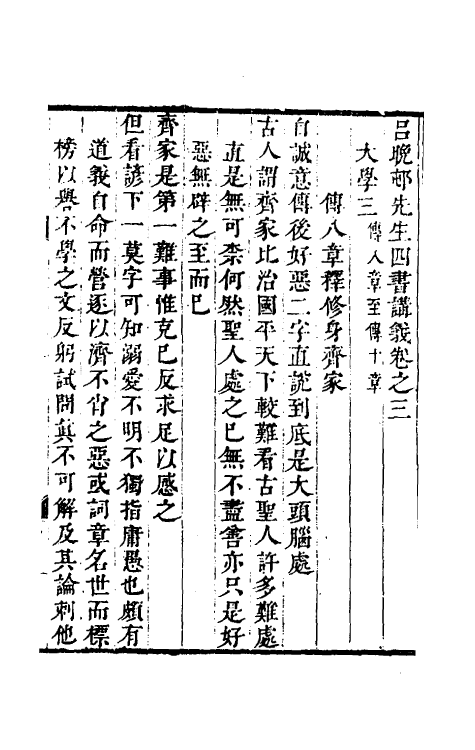 呂晚邨先生四書講義卷之三
大學三 傳八章至傳十章
傳八章釋修身齊家
自誠意傳後好惡二字直說到底是大頭腦處
古人謂齊家比治國平天下較難看古聖人許多難處
直是無可柰何然聖人處之已無不盡善亦只是好
惡無辟之至而已
齊家是第一難事惟克己反求足以感之
但看諺下一莫字可知溺愛不明不獨指庸愚也頗有
道義自命而營逐以濟不肖之惡或詞章名世而標
榜以譽不學之文反躬試問真不可解及其論刺他